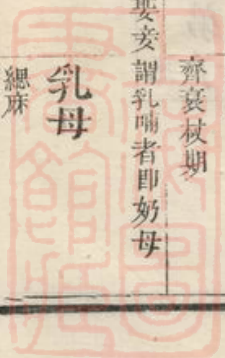 齊衰杖期
妾謂乳哺者即奶母
乳母
緦麻